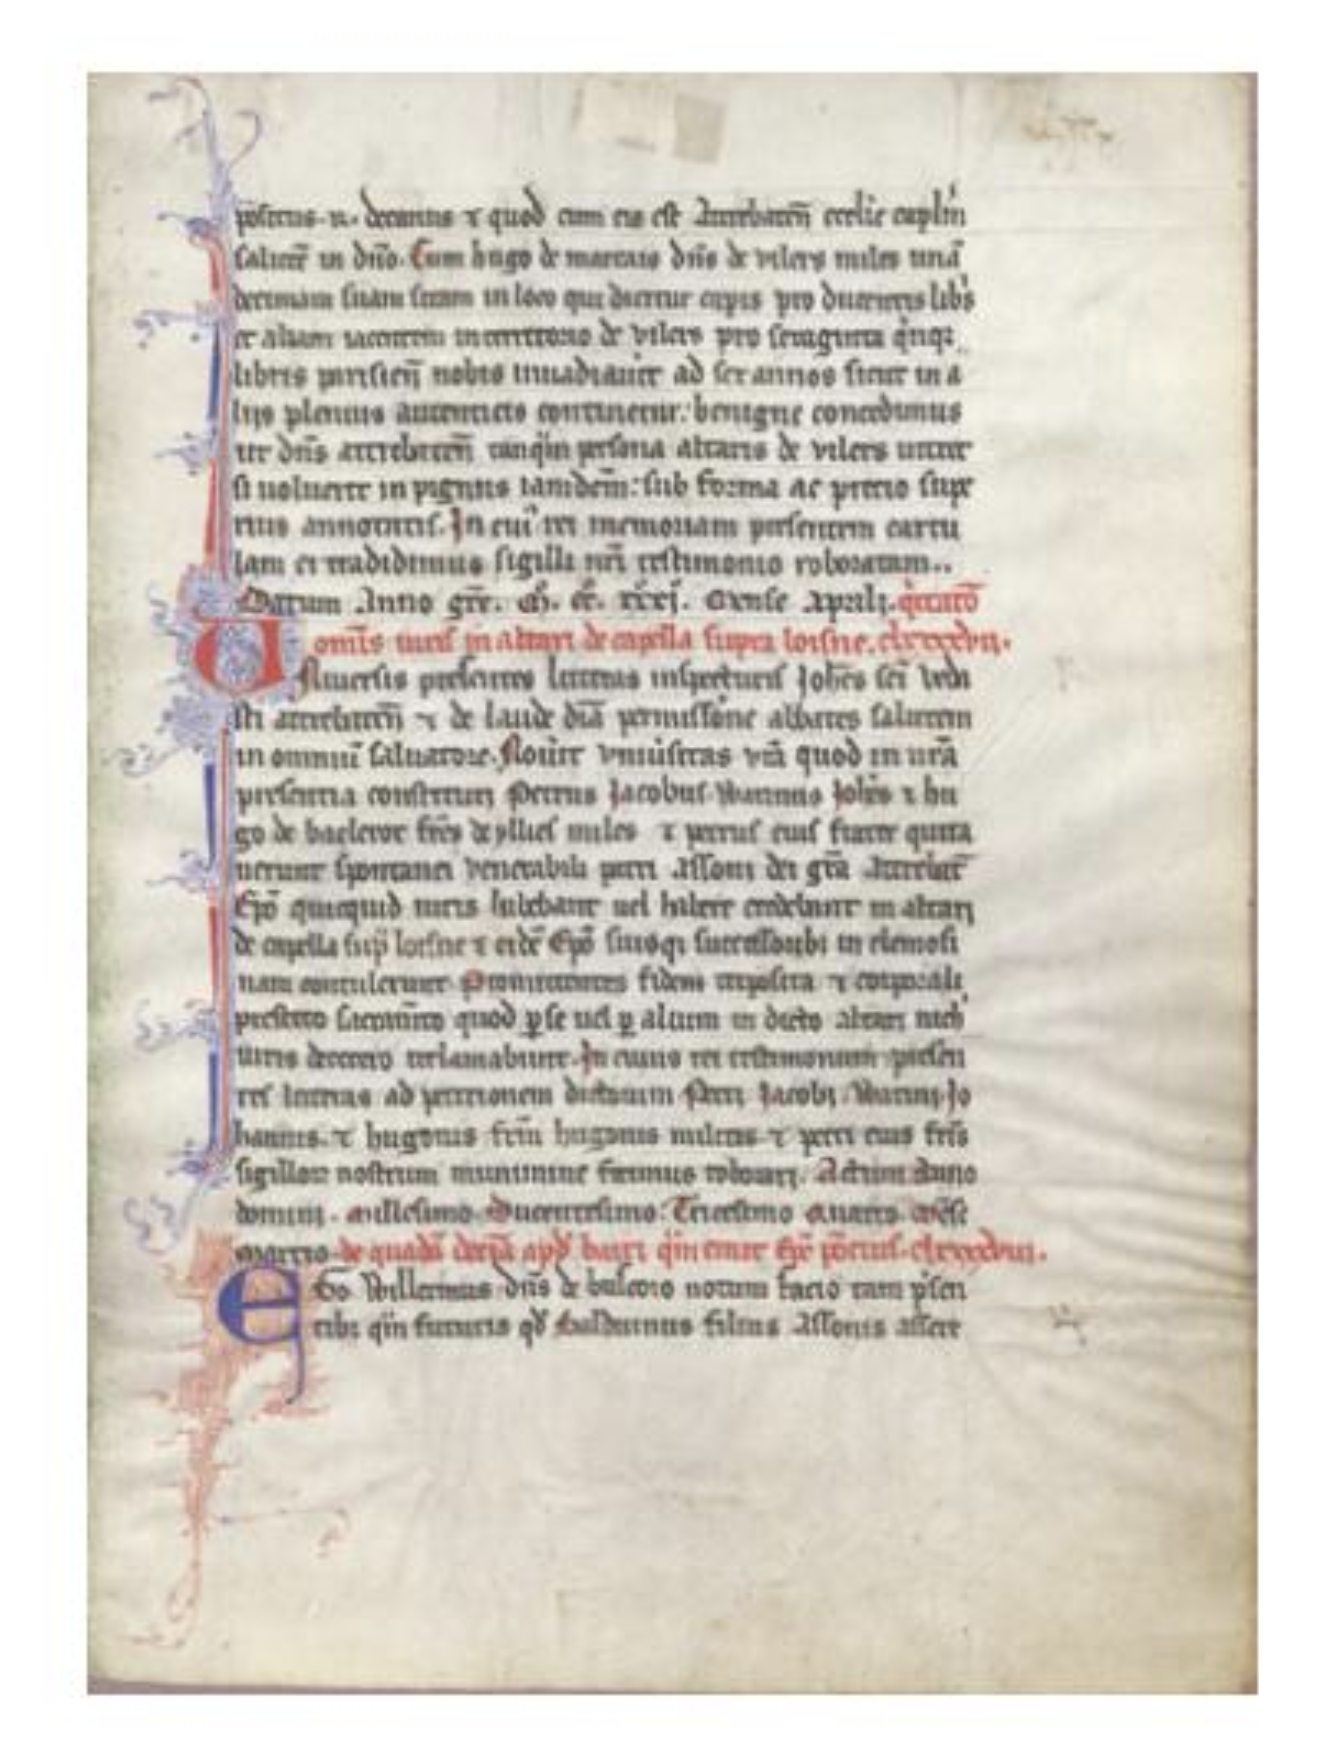 positus. N. decanus ⁊ quod cum eis est Attrebateñ ecclie capl'm
salutẽ in dño. Cum hugo de dñs de vilers miles unã
decimam suam sitam in loco qui dicitur pro ducentis lib's
et aliam iacentem in territorio de vilers pro sexaginta q'nq;
libris parisieñ nobis inuadiauit ad sex annos sicut in a
liis plenius autenticis continetur: benigne concedimus
ut dñs attrebateñ tanq̃m persona altaris de vilers intret
si uoluerit in pignus iamdem̃: sub forma ac precio supe
rius annotatis. In cui' rei memoriam presentem cartu
lam ei tradidimus sigilli nr̃i testimonio roboratam..
Datum Anno gr̃e. M̊. cc̊. xxxj. Mense Apili.
omĩs iuris in altari de capella supra loisne.
Niuersis presentes litteras inspecturis Joh̃es sc̃i Veda
sti attrebateñ ⁊ de laude diã permissione abbates salutem
in omniũ saluatore. Nouit vniũsitas vr̃a quod in nr̃a
presentia constituti Petrus Jacobus Warinus Joh̃es ⁊ hu
go de fr̃es miles ⁊ petrus eius frater quita
uerunt spontanei venerabili patri Assoni dei gr̃a Attrebateñ
Ep̃o quicquid iuris habebant uel habere credebant in altari
de capella sup̃ loisne ⁊ eidẽ Ep̃o suisq; successorib; in elemosi
nam contulerunt Promittentes fidem ⁊ corporali
prestito sacram̃to quod ꝑ se uel ꝑ alium in dicto altari nich'
iuris decetero reclamabunt. In cuius rei testimonium presen
tes litteras ad petitionem dictorum Petri Jacobi. Warini Jo
hannis. ⁊ hugonis fr̃m hugonis militis ⁊ petri eius fr̃is
sigillorꝝ nostrorum munimine fecimus roborari. Actum Anno
domini. Millesimo Ducentesimo. Tricesimo Quarto. Mẽse
martio. de quadã decĩa apd' q̃m emit
Go Willermus dñs de notum facio tam p'sen
tib; q̃m futuris qd' Balduinus filius Assonis